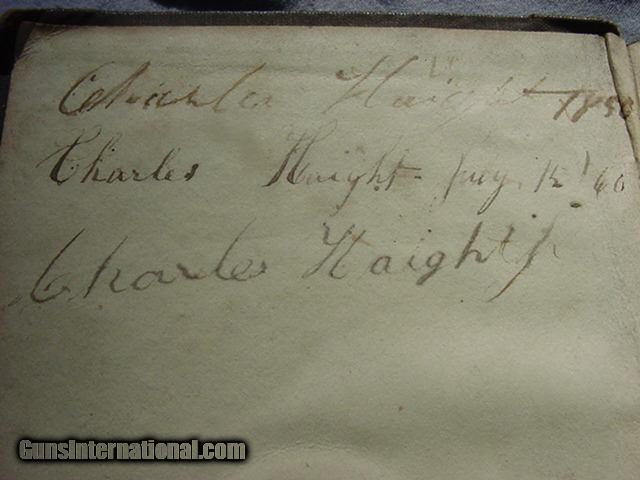 Charles Haight
Charles Haight July 12 '60
Charles Haight
GunsInternational.com